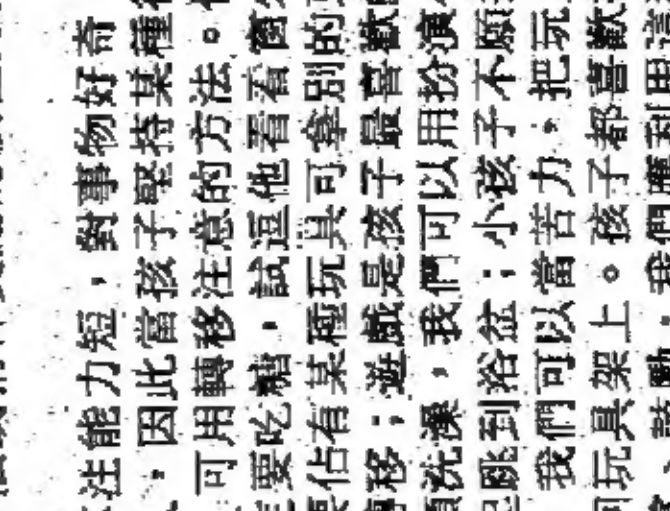 注能力短,對事物好奇
,因此當孩子堅持某種
可用轉移注意的方法。
要吃糖,試逗他看看窗
佔有某種玩具可拿別的
移;遊戲是孩子最喜歡
洗澡,我們可以用扮演
跳到浴盆;小孩子不願
我們可以當苦力,把玩
玩具架上。孩子都喜歡
我們應利用這